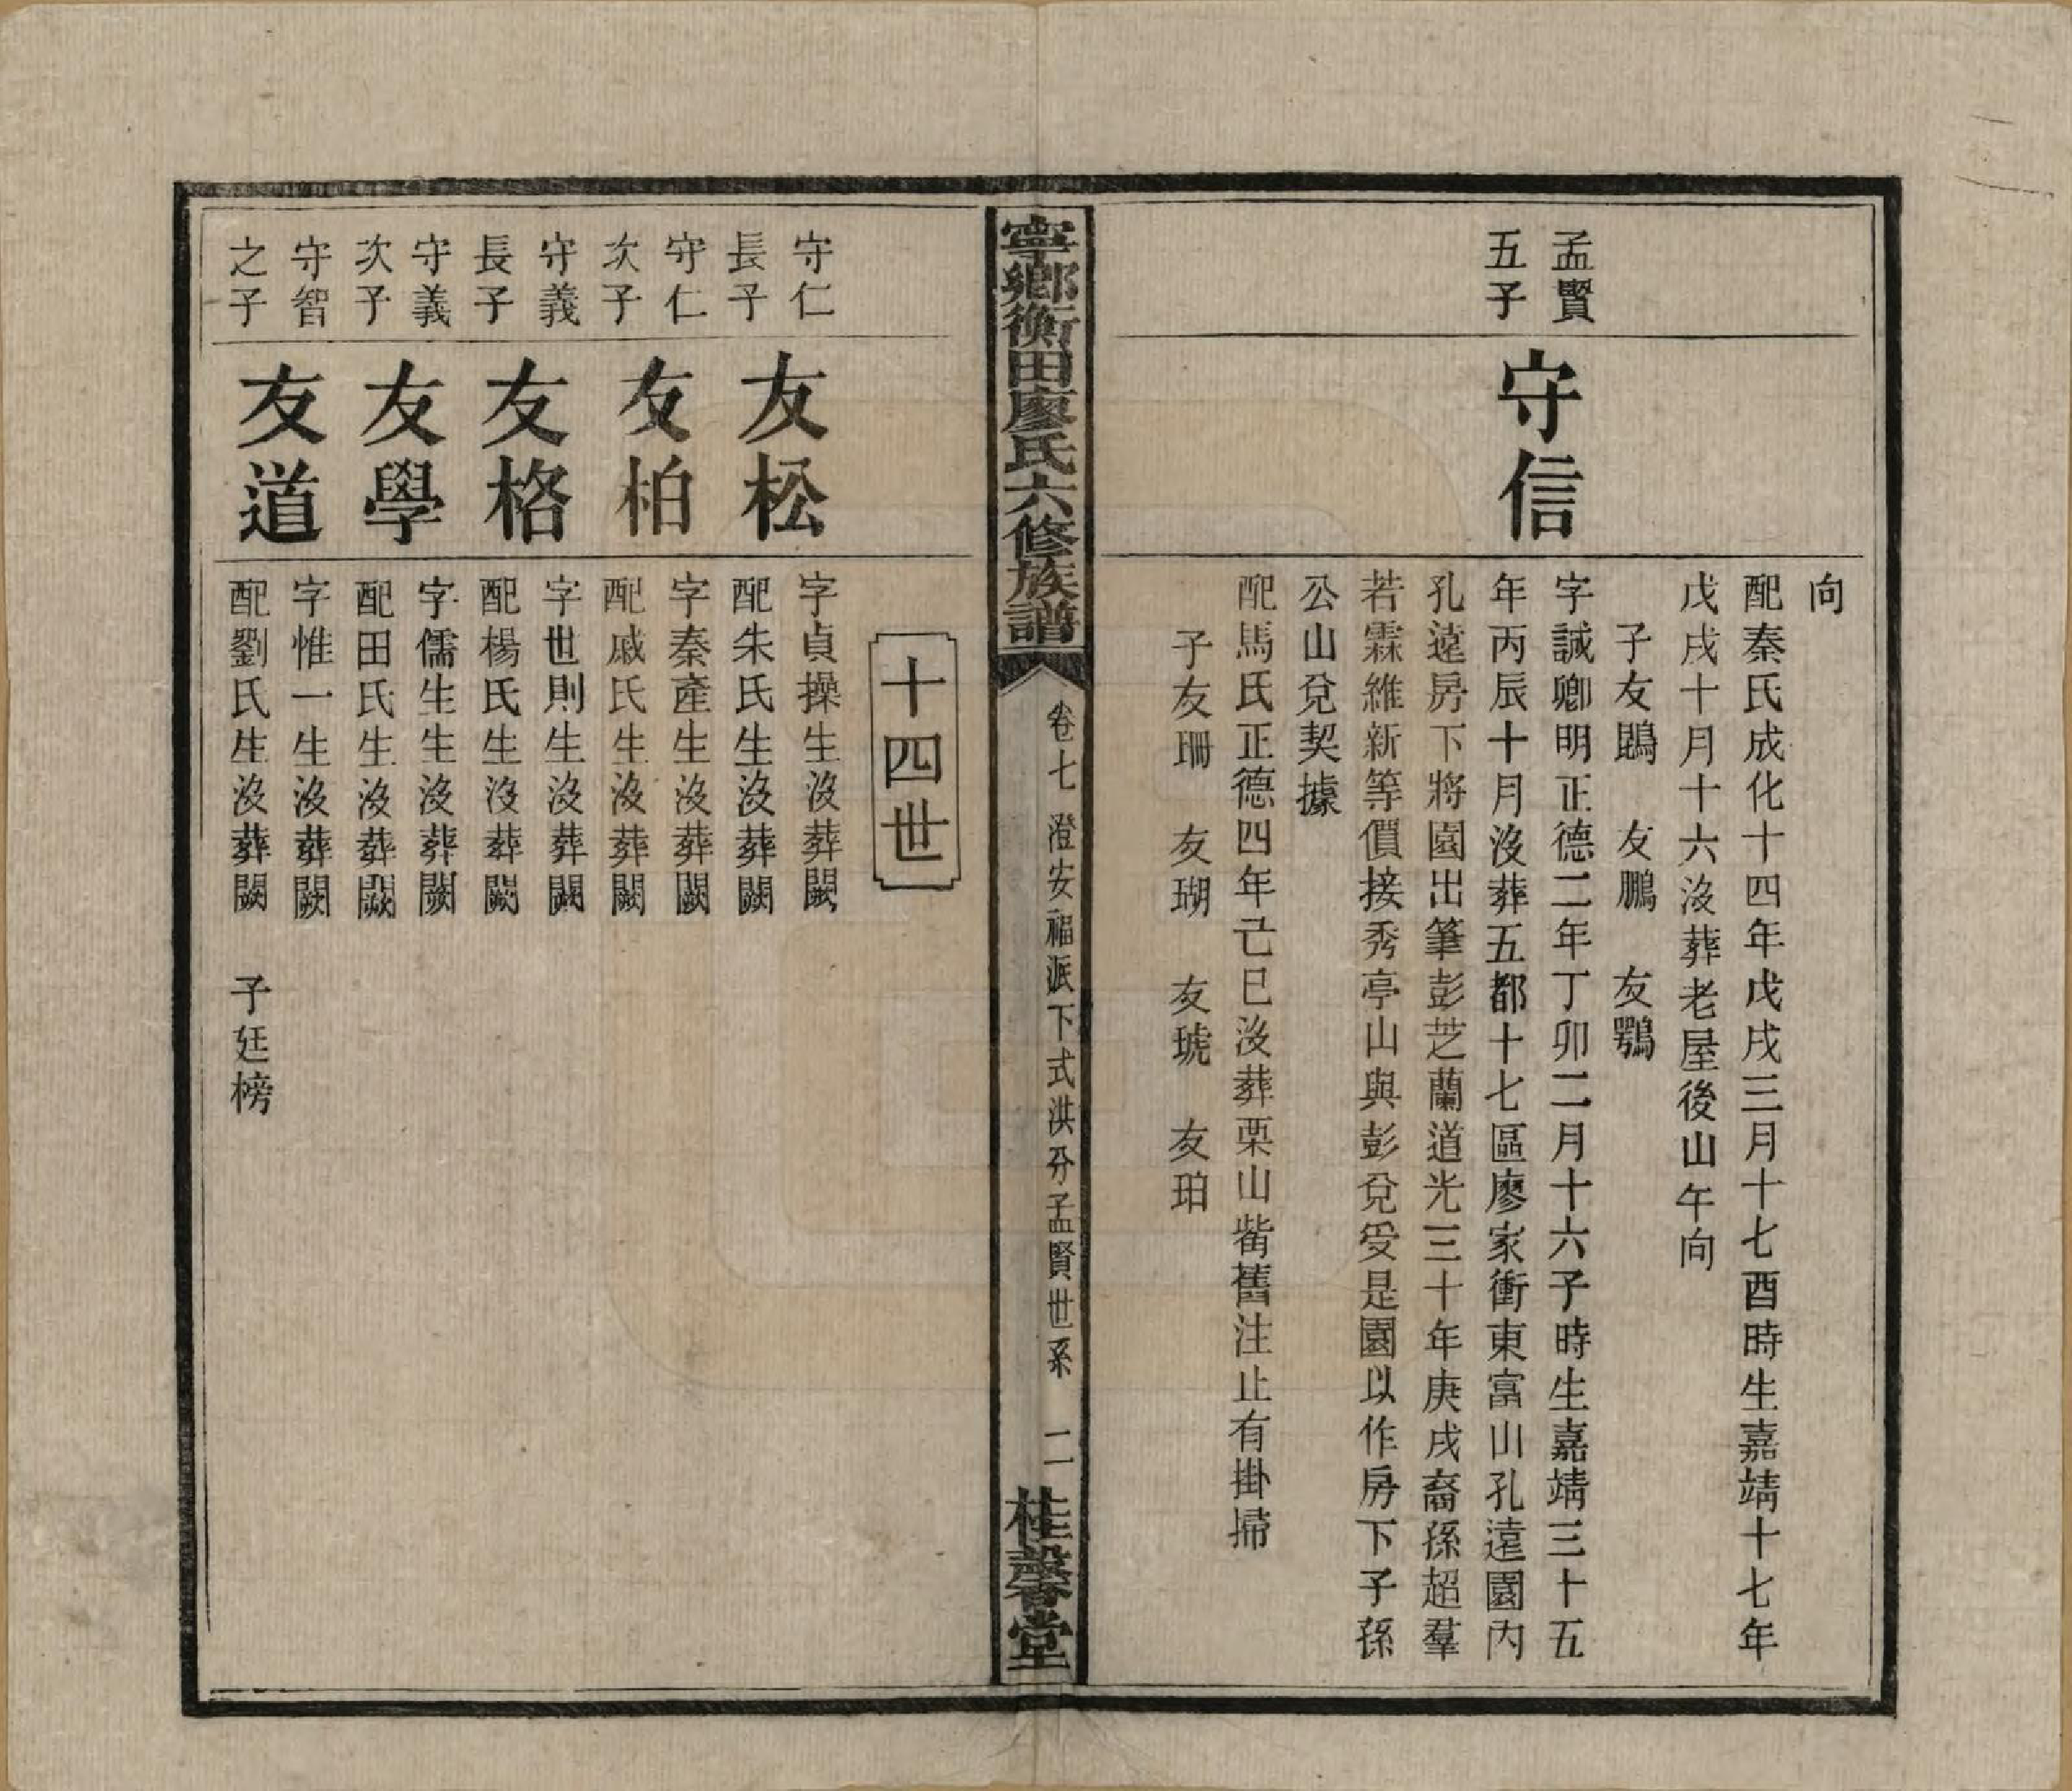 向
配秦氏成化十四年戊戌三月十七酉時生嘉靖十七年
戊戌十月十六沒葬老屋後山午向
子友鵾　友鵬　友鶚
孟賢
五子
守信
字誠卿明正德二年丁卯二月十六子時生嘉靖三十五
年丙辰十月沒葬五都十七區廖家衝東富山孔遠園內
孔遠房下將園出筆彭芝蘭道光三十年庚戌裔孫超羣
若霖維新等價接秀亭山與彭兌受是園以作房下子孫
公山兌契據
配馬氏正德四年己巳沒葬栗山觜舊注止有掛掃
子友珊　友瑚　友琥　友珀
寧鄉衡田廖氏六修族譜
卷七　澄安福派下式洪分孟賢世系　二
桂馨堂
十四世
守仁
長子
友松
字貞操生沒葬闕
配朱氏生沒葬闕
守仁
次子
友柏
字秦產生沒葬闕
配戚氏生沒葬闕
守義
長子
友格
字世則生沒葬闕
配楊氏生沒葬闕
守義
次子
友學
字儒生生沒葬闕
配田氏生沒葬闕
守智
之子
友道
字惟一生沒葬闕
配劉氏生沒葬闕　子廷榜